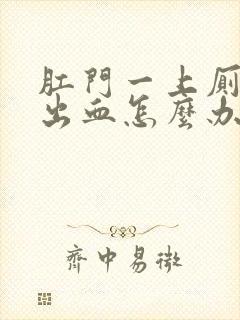 肛門一上厠
出血怎麼办
齊中易微